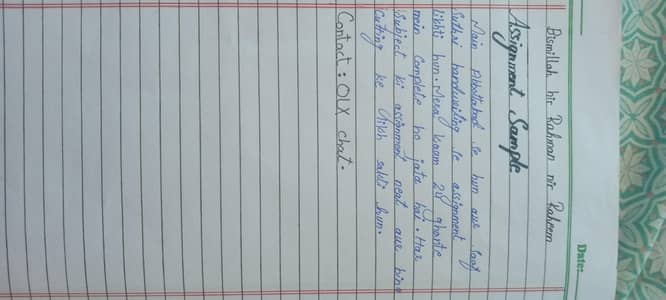 Date:
Bismillah hir Rahman nir Raheem
Assignment Sample
Main Abbottabad se hun aur saaf
suthri handwriting se assignment
likhti hun. Mera kaam 24 ghante
mein complete ho jata hai. Har
subject ki assignment neat aur bina
cutting ke likh sakti hun.
Contact: OLX chat.